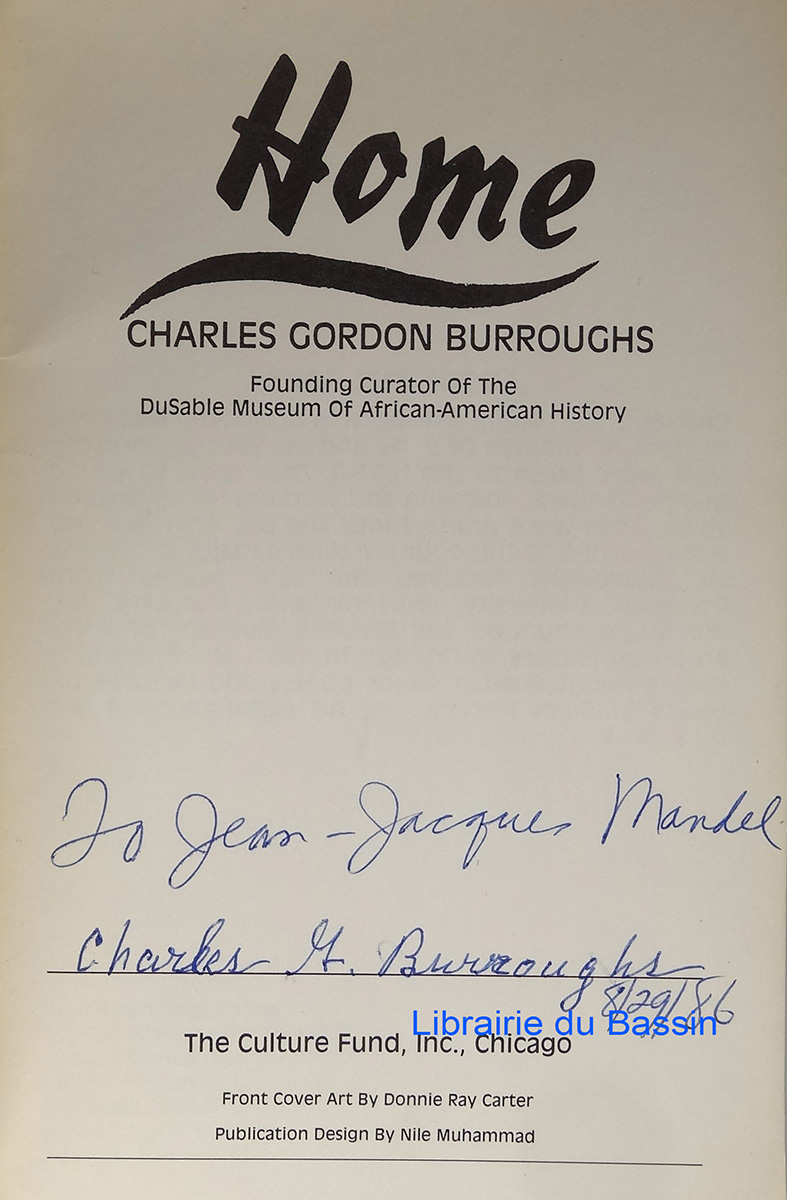 Home
CHARLES GORDON BURROUGHS
Founding Curator Of The
DuSable Museum Of African-American History
To Jean-Jacques Mandel
Charles G. Burroughs
8/29/86
Librairie du Bassin
The Culture Fund, Inc., Chicago
Front Cover Art By Donnie Ray Carter
Publication Design By Nile Muhammad